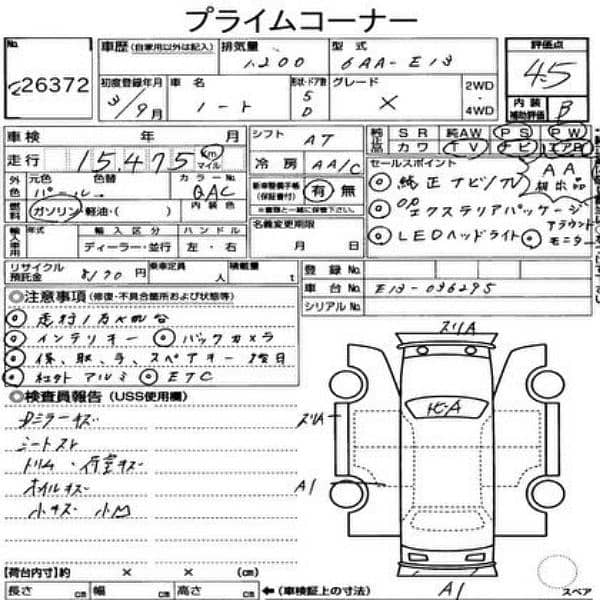 プライムコーナー
No.
26372
車歴 (自家用以外は記入)
排気量
1200
型式
6AA-E13
評価点
4.5
初度登録年月
3/9月
車名
ノート
形状・ドア数
5
D
グレード
X
2WD
・
4WD
内装
補助評価
B
車検 年 月
シフト
AT
純正
SR 純AW PS PW
カワ TV ナビ エアB
走行
15,475
km
マイル
冷房
AA/C
セールスポイント
AA
純正ナビ/TV
外色
元色 色替
カラーNo.
パール
QAC
新車整備手帳
(保証書付)
有 無
※書類と一緒に保管下さい。
OP
エクステリアパッケージ
燃料
ガソリン・軽油・( )
内装色
LEDヘッドライト
アラウンド
モニター
輸入車用
年式 輸入区分 ハンドル
ディーラー・並行 左・右
名義変更期限
月 日
リサイクル
預託金
8170円
乗車定員
人
積載量
t
登録No.
車台No.
E13-036295
シリアルNo.
◎注意事項 (修復・不具合箇所および状態等)
走行1万km台
インテリキー
バックカメラ
保、取、ラ、スペアキー後日
社外アルミ
ETC
◎検査員報告 (USS使用欄)
Dミラーキズ
シートスレ
トリム・荷室キズ
ホイルキズ
小キズ 小凹
ズリA
ズリA
A1
A1
スペア
【荷台内寸】約 × × (cm)
長さ cm 幅 cm 高さ cm ← (車検証上の寸法)